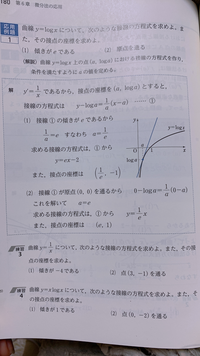 180 第6章 微分法の応用
応用
例題
1
曲線 y=log x について,次のような接線の方程式を求めよ。ま
た,その接点の座標を求めよ。
(1) 傾きが e である (2) 原点を通る
(解説) 曲線 y=log x 上の点 (a, log a) における接線の方程式を作り,
条件を満たすように a の値を定める。
解 y'=1/x であるから,接点の座標を (a, log a) とすると,
接線の方程式は y-log a=1/a(x-a) …… ①
(1) 接線 ① の傾きが e であるから
1/a=e すなわち a=1/e
求める接線の方程式は,① から
y=ex-2
また,接点の座標は (1/e, -1)
y
y=log x
(2) 接線 ① が原点 (0, 0) を通るから 0-log a=1/a(0-a)
これを解いて a=e
求める接線の方程式は,① から y=1/e x
また,接点の座標は (e, 1)
練習
3
曲線 y=1/x について,次のような接線の方程式を求めよ。また,その接
点の座標を求めよ。
(1) 傾きが -4 である (2) 点 (3, -1) を通る
練習
4
曲線 y=x log x について,次のような接線の方程式を求めよ。また,
その接点の座標を求めよ。
(1) 傾きが 1 である (2) 点 (0, -2) を通る